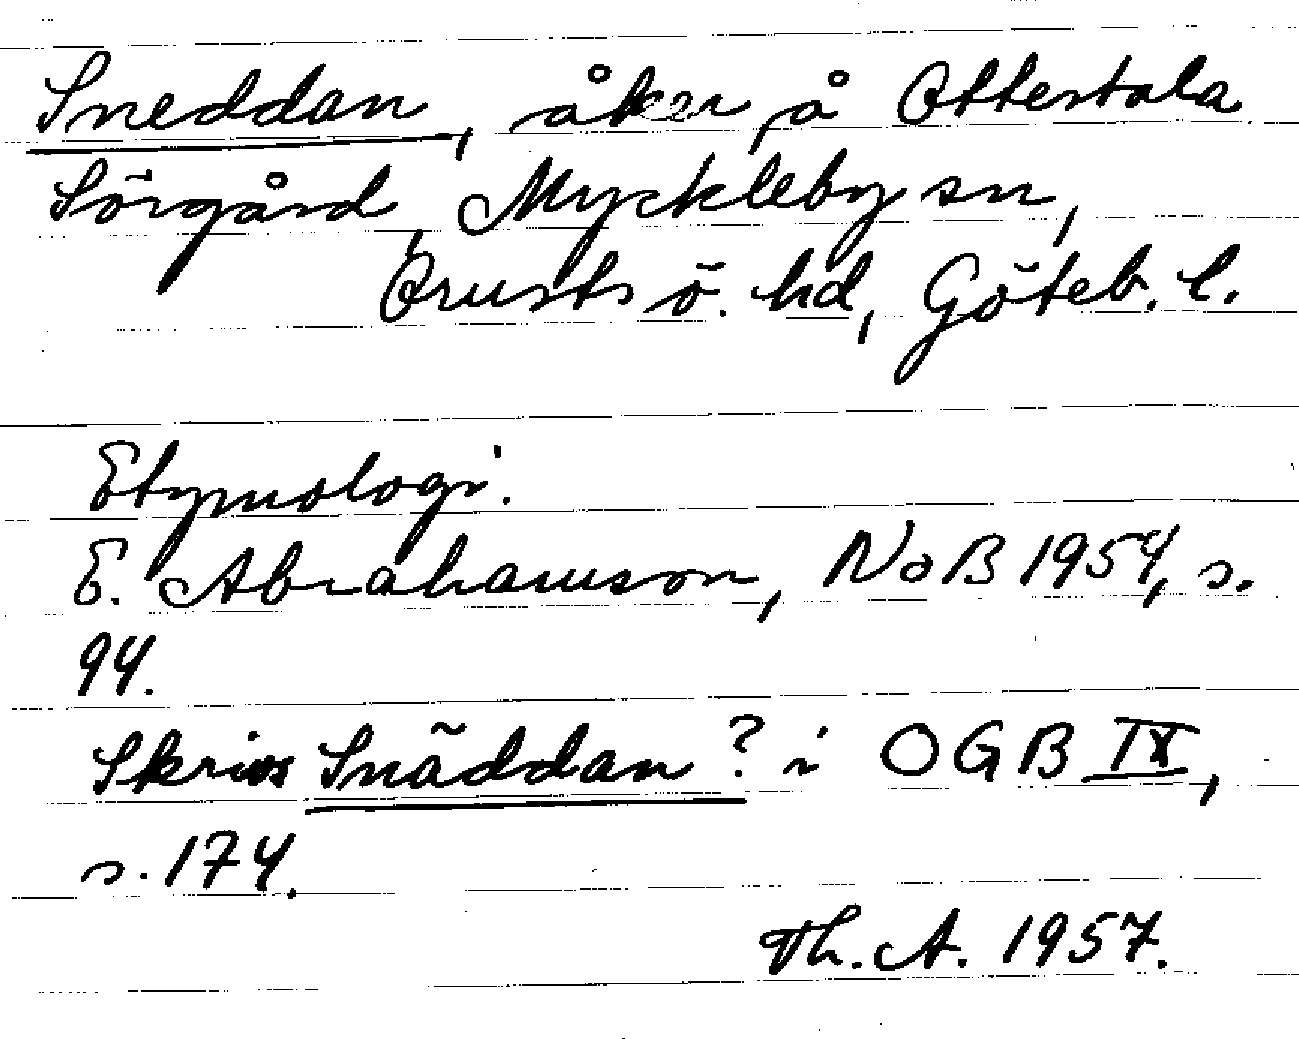 Sneddan, åker å Ottestala
Sörgård, Myckleby sn,
Orusts ö. hd, Göteb. l.
Etymologi.
E. Abrahamson, NoB 1954, s.
94.
Skrivs Snäddan? i OGB IX,
s. 174.
Th. A. 1957.